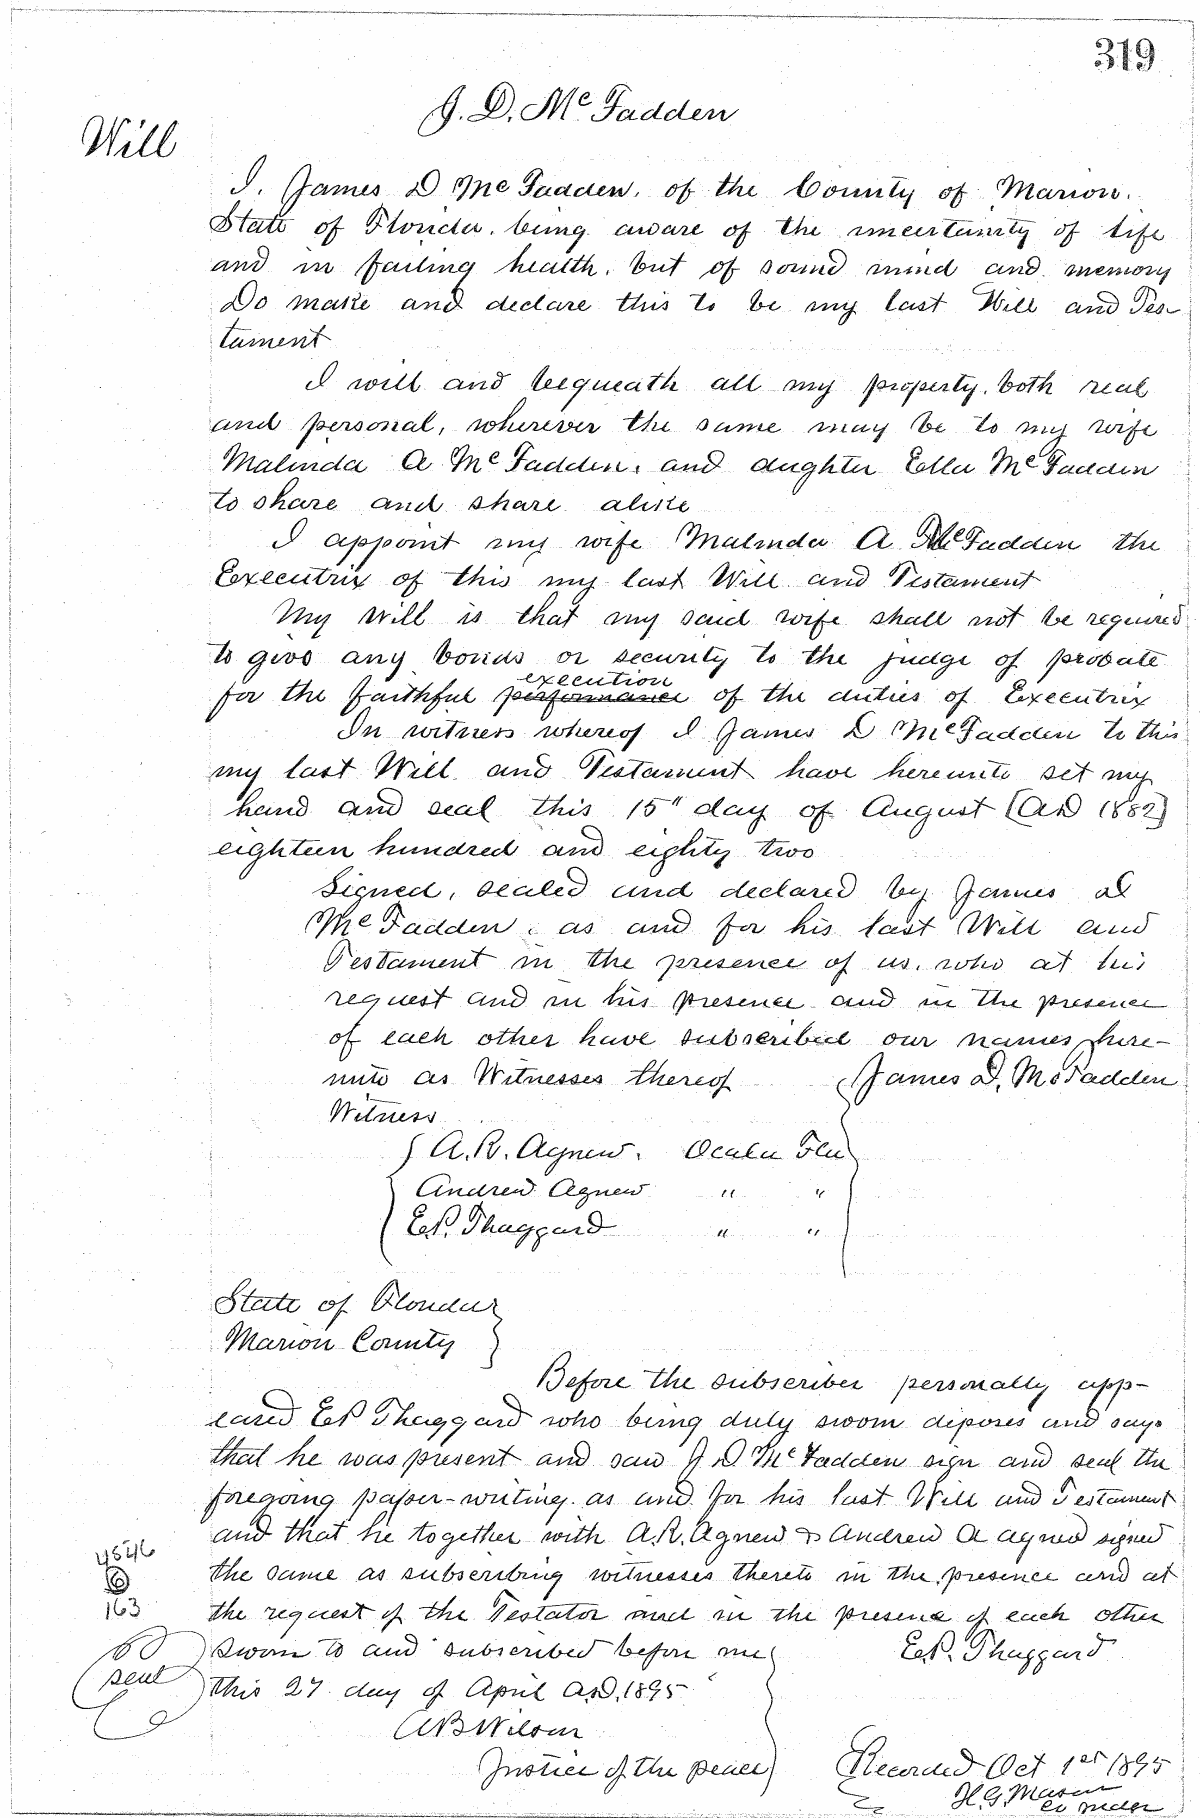 319
J. D. McFadden
Will
I. James D McFadden. of the County of Marion.
State of Florida. being aware of the uncertainty of life
and in failing health. but of sound mind and memory
Do make and declare this to be my last Will and Tes-
tament
I will and bequeath all my property. both real
and personal, wherever the same may be to my wife
Malinda A McFadden. and daughter Ella McFadden
to share and share alike
I appoint my wife Malinda A McFadden the
Executrix of this my last Will and Testament
My Will is that my said wife shall not be required
to give any bonds or security to the judge of probate
execution
for the faithful performance of the duties of Executrix
In witness whereof I James D McFadden to this
my last Will and Testament have hereunto set my
hand and seal this 15" day of August (AD 1882)
eighteen hundred and eighty two
Signed, sealed and declared by James D
McFadden. as and for his last Will and
Testament in the presence of us. who at his
request and in his presence and in the presence
of each other have subscribed our names here-
unto as Witnesses thereof James D. McFadden
Witness
A. R. Agnew. Ocala Fla
Andrew Agnew " "
E.P. Thaggard " "
State of Florida
Marion County
Before the subscriber personally app-
eared EP Thaggard who being duly sworn deposes and says
that he was present and saw J D McFadden sign and seal the
foregoing paper-writing as and for his last Will and Testament
and that he together with A.R. Agnew & Andrew A agnew signed
the same as subscribing witnesses thereto in the presence and at
the request of the Testator and in the presence of each other
Sworn to and subscribed before me E.P. Thaggard
this 27 day of April A.D. 1895
AB Wilson
Justice of the peace
4546
6
163
seal
Recorded Oct 1st 1895
H. G. Mason
Co Judge